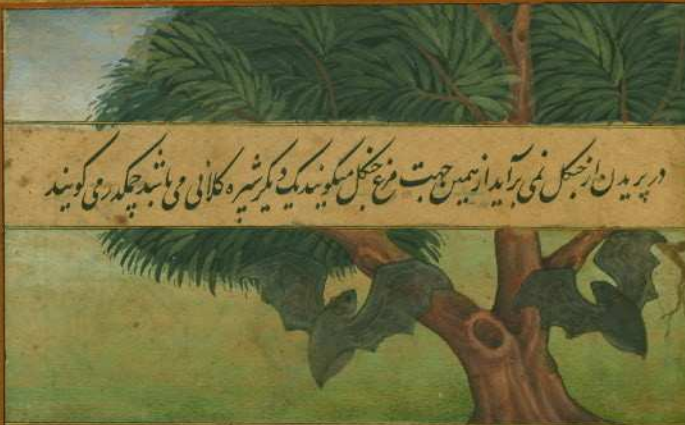 در پریدن از جنگل نمی برآید از همین جهت مرغ جنگل میگویند یک دیگر شپره کلانی می باشد چمکدر می گویند